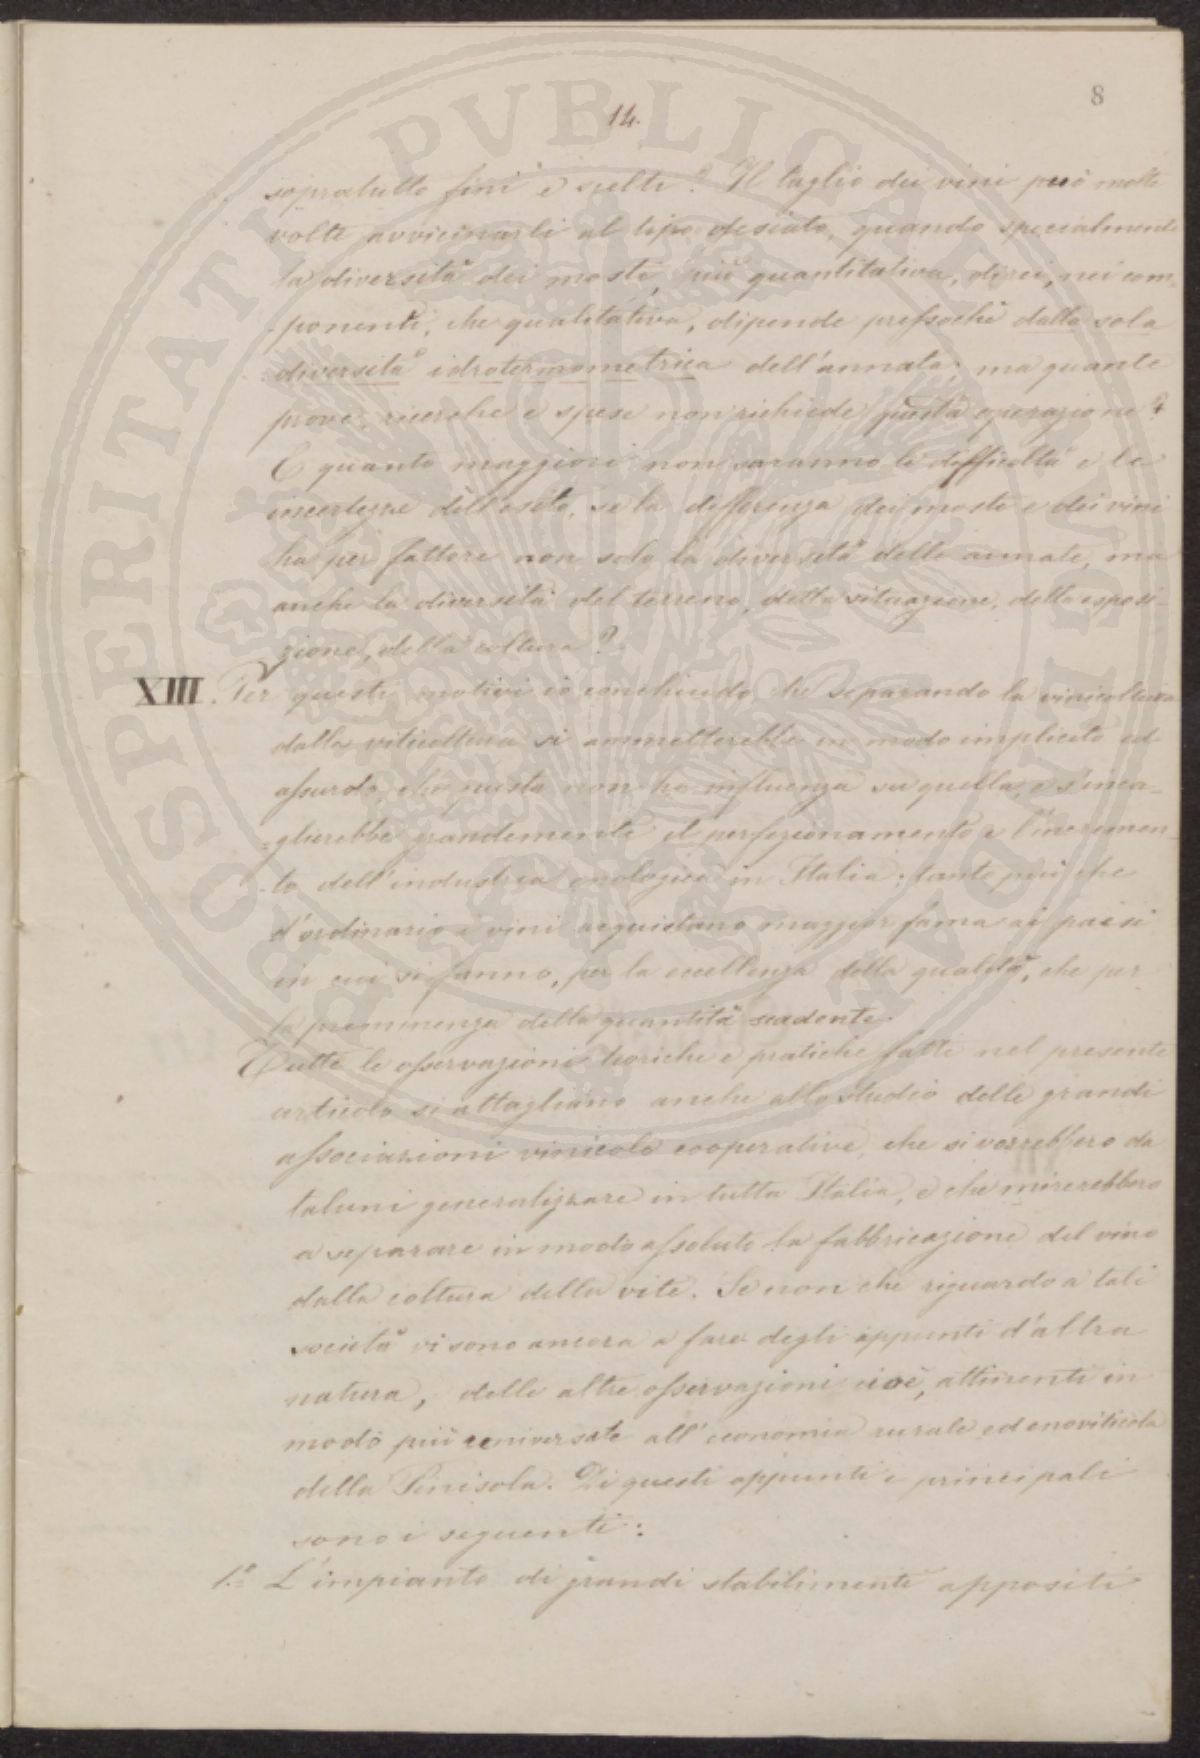 8
14.
sopratutto fini e scelti? Il taglio dei vini può molte
volte avvicinarli al tipo desiato, quando specialmente
la diversità dei mosti, più quantitativa, direi, nei com-
-ponenti, che qualitativa, dipende pressochè dalla sola
diversità idrotermometrica dell'annata; ma quante
prove, ricerche e spese non richiede questa operazione?
E quanto maggiori non saranno le difficoltà e le
incertezze dell'esito, se la differenza dei mosti e dei vini
ha per fattore non solo la diversità delle annate, ma
anche la diversità del terreno, della situazione, della esposi-
zione, della coltura?
XIII. Per questi motivi io conchiudo che separando la vinicoltura
dalla viticoltura si ammetterebbe in modo implicito ed
assurdo, che questa non ha influenza su quella, e s'inca-
=glierebbe grandemente il perfezionamento e l'incremen-
-to dell'industria enologica in Italia; tanto più che
d'ordinario i vini acquistano maggior fama ai paesi
in cui si fanno, per la eccellenza della qualità, che per
la preminenza della quantità scadente.
Tutte le osservazioni teoriche e pratiche fatte nel presente
articolo si attagliano anche allo studio delle grandi
associazioni vinicole cooperative, che si vorrebbero da
taluni generalizzare in tutta Italia, e che mirerebbero
a separare in modo assoluto la fabbricazione del vino
dalla coltura della vite. Se non che riguardo a tali
società vi sono ancora a fare degli appunti d'altra
natura, delle altre osservazioni cioè, attinenti in
modo più universale all'economia rurale ed enoviticola
della Penisola. Di questi appunti i principali
sono i seguenti:
1.° L'impianto di grandi stabilimenti appositi
PROSPERITATI PVBLICAE AVGENDAE